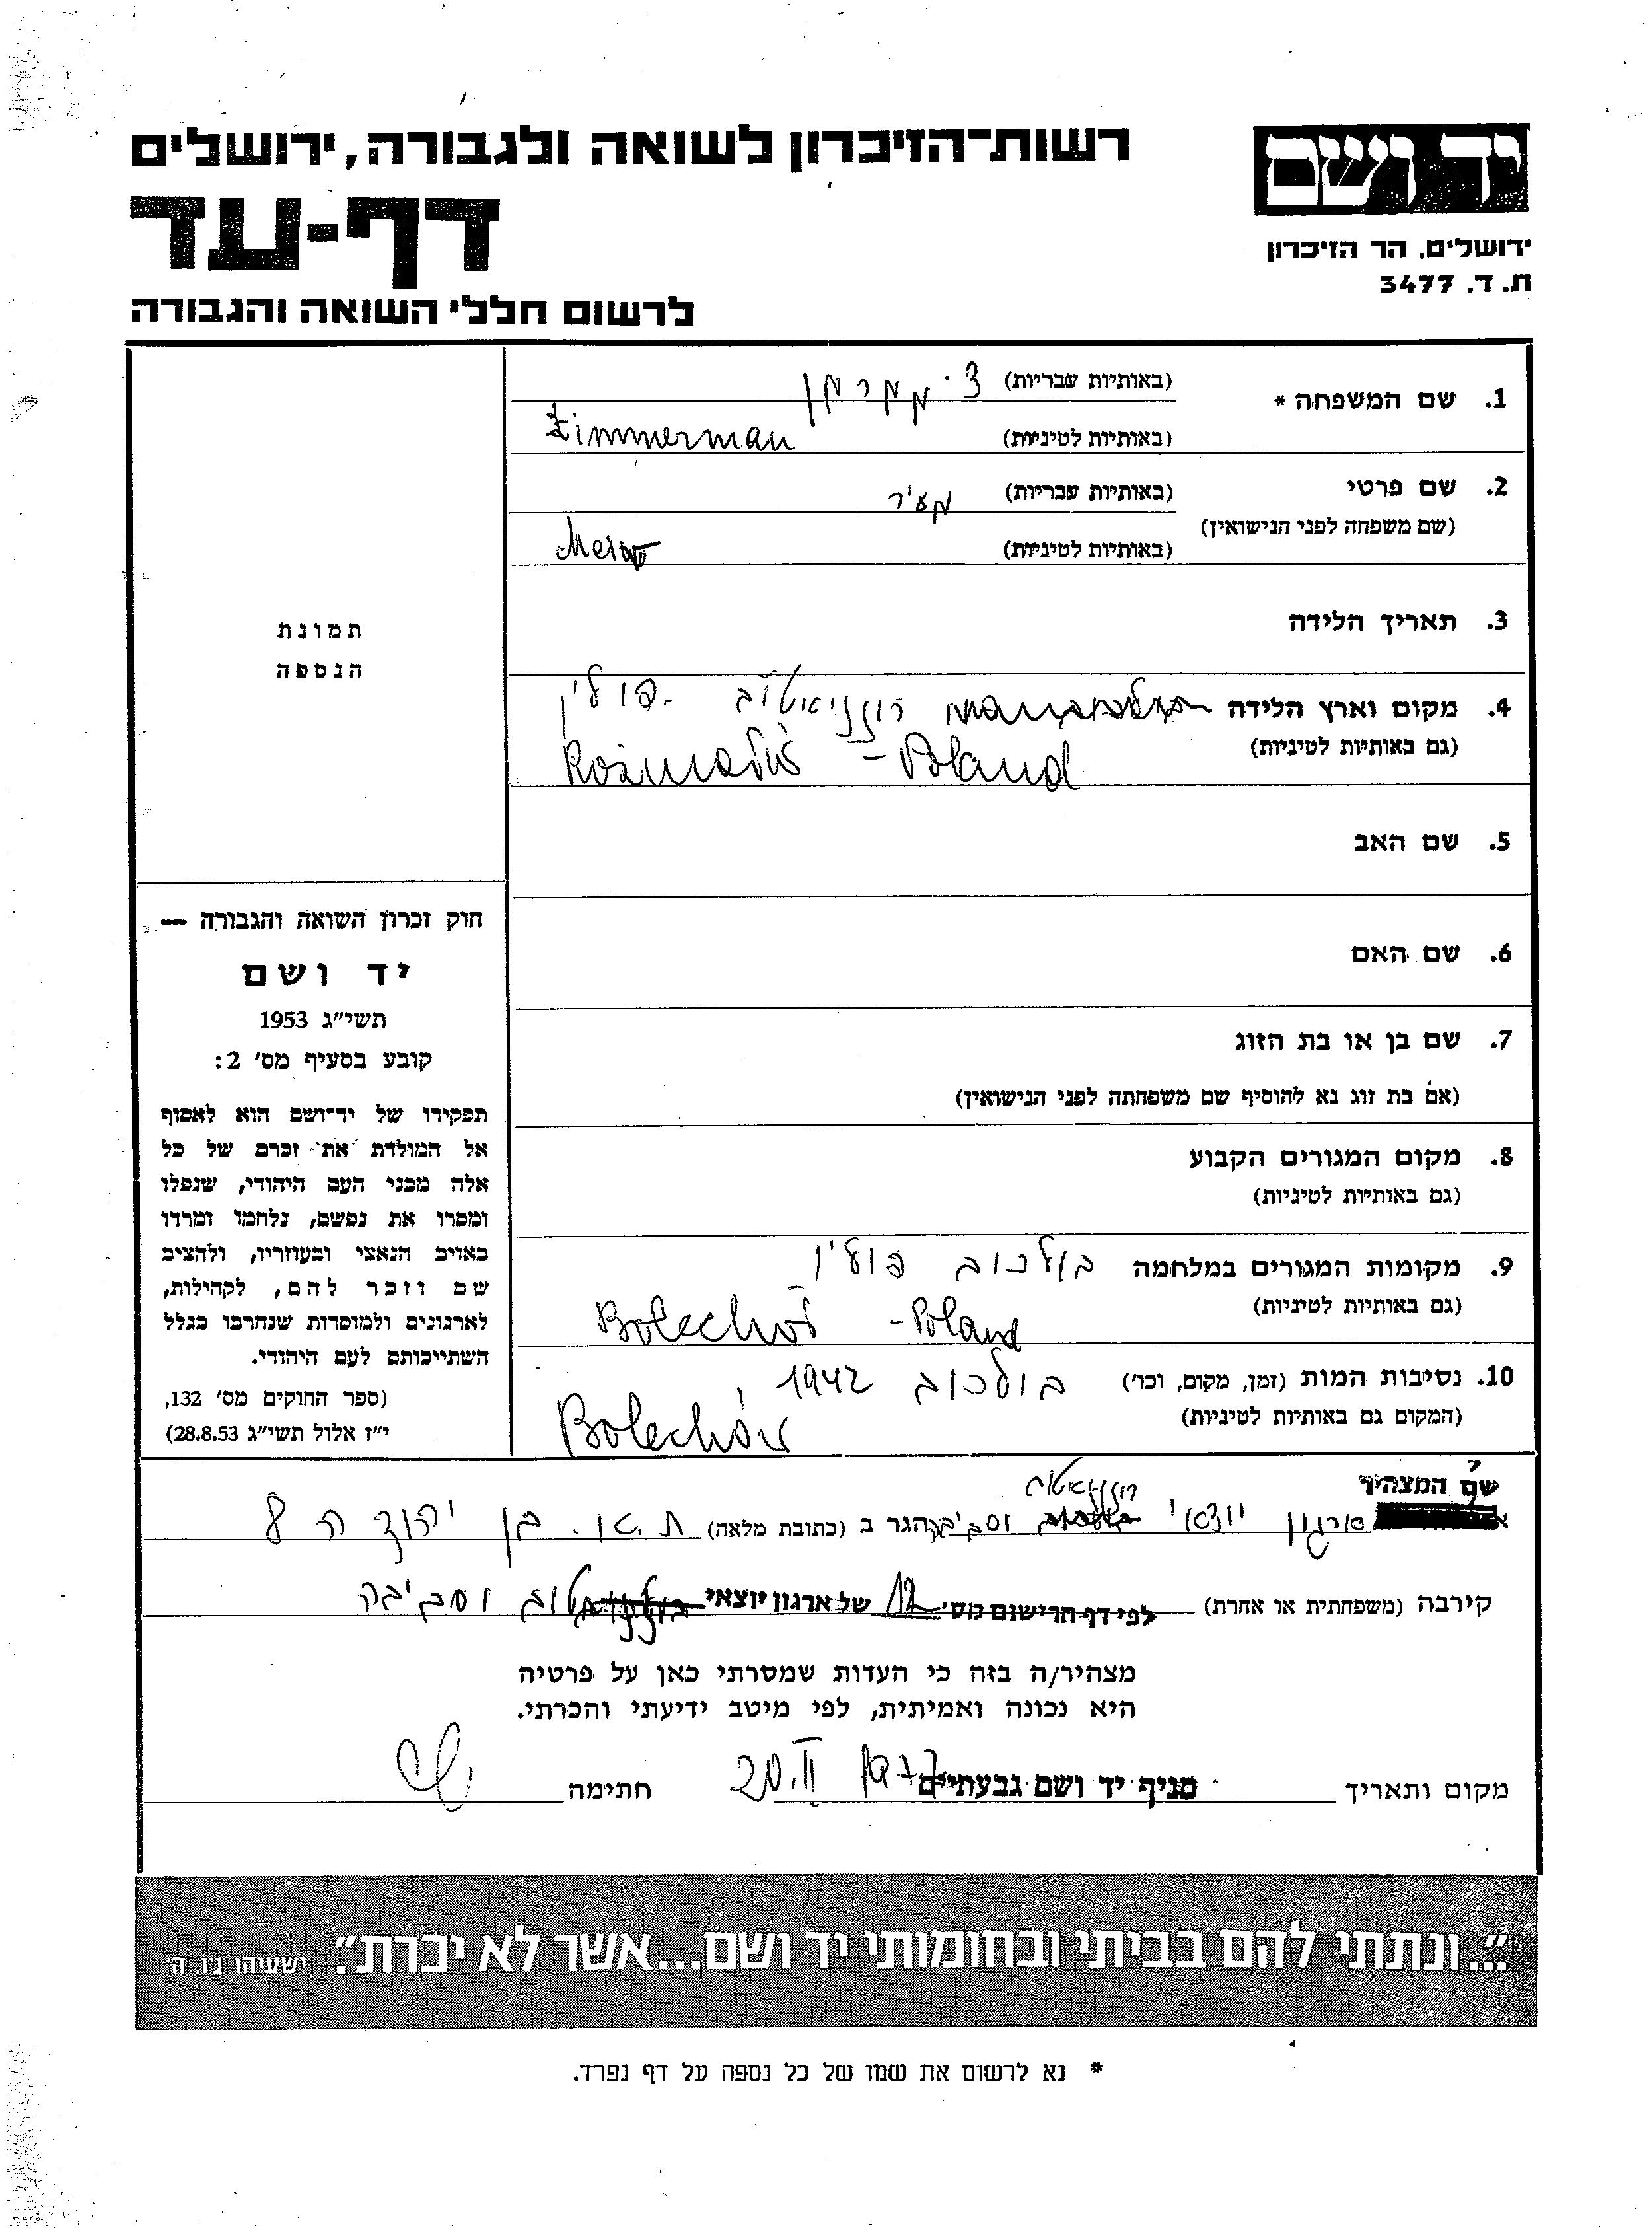 יד ושם
ירושלים, הר הזיכרון
ת. ד. 3477
רשות־הזיכרון לשואה ולגבורה, ירושלים
דף-עד
לרשום חללי השואה והגבורה
1. שם המשפחה *
(באותיות עבריות) צימרמן
(באותיות לטיניות) Zimmerman
2. שם פרטי
(שם משפחה לפני הנישואין)
(באותיות עבריות) מאיר
(באותיות לטיניות)
3. תאריך הלידה
4. מקום וארץ הלידה רוז'ניאטוב - פולין
(גם באותיות לטיניות) - Poland
5. שם האב
6. שם האם
7. שם בן או בת הזוג
(אם בת זוג נא להוסיף שם משפחתה לפני הנישואין)
8. מקום המגורים הקבוע
(גם באותיות לטיניות)
9. מקומות המגורים במלחמה בולכוב פולין
(גם באותיות לטיניות) Bolechów - Poland
10. נסיבות המות (זמן, מקום, וכו') בולכוב 1942
(המקום גם באותיות לטיניות) Bolechów
תמונת
הנספה
חוק זכרון השואה והגבורה —
יד ושם
תשי״ג 1953
קובע בסעיף מס׳ 2:
תפקידו של יד־ושם הוא לאסוף
אל המולדת את זכרם של כל
אלה מבני העם היהודי, שנפלו
ומסרו את נפשם, נלחמו ומרדו
באויב הנאצי ובעוזריו, ולהציב
שם וזכר להם, לקהילות,
לארגונים ולמוסדות שנחרבו בגלל
השתייכותם לעם היהודי.
(ספר החוקים מס׳ 132,
י״ז אלול תשי״ג 28.8.53)
שם המצהיר
ארגון יוצאי רוז'ניאטוב וסביבה הגר ב (כתובת מלאה) ת.א. בן יהודה 8
קירבה (משפחתית או אחרת) לפי דף הרישום מס׳ 12 של ארגון יוצאי רוז'ניאטוב וסביבה
מצהיר/ה בזה כי העדות שמסרתי כאן על פרטיה
היא נכונה ואמיתית, לפי מיטב ידיעתי והכרתי.
מקום ותאריך סניף יד ושם גבעתיים 20.II 1977 חתימה
״...ונתתי להם בביתי ובחומותי יד ושם...אשר לא יכרת״. ישעיהו נ״ו, ה
* נא לרשום את שמו של כל נספה על דף נפרד.